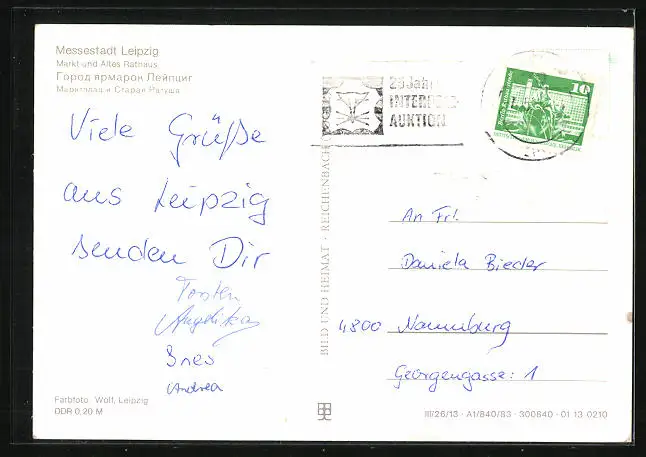 Messestadt Leipzig
Markt und Altes Rathaus
Город ярмарок Лейпциг
Маркtплац и Старая Ратуша
Viele Grüße
aus Leipzig
senden Dir
Torsten
Angelika
Ines
Andrea
Farbfoto: Wolf, Leipzig
DDR 0,20 M
BILD UND HEIMAT · REICHENBACH
Jahre
AUKTION
10
An Frl.
Daniela Bieder
4800 Naumburg
Georgengasse: 1
III/26/13 · A1/840/83 · 300640 · 01 13 0210